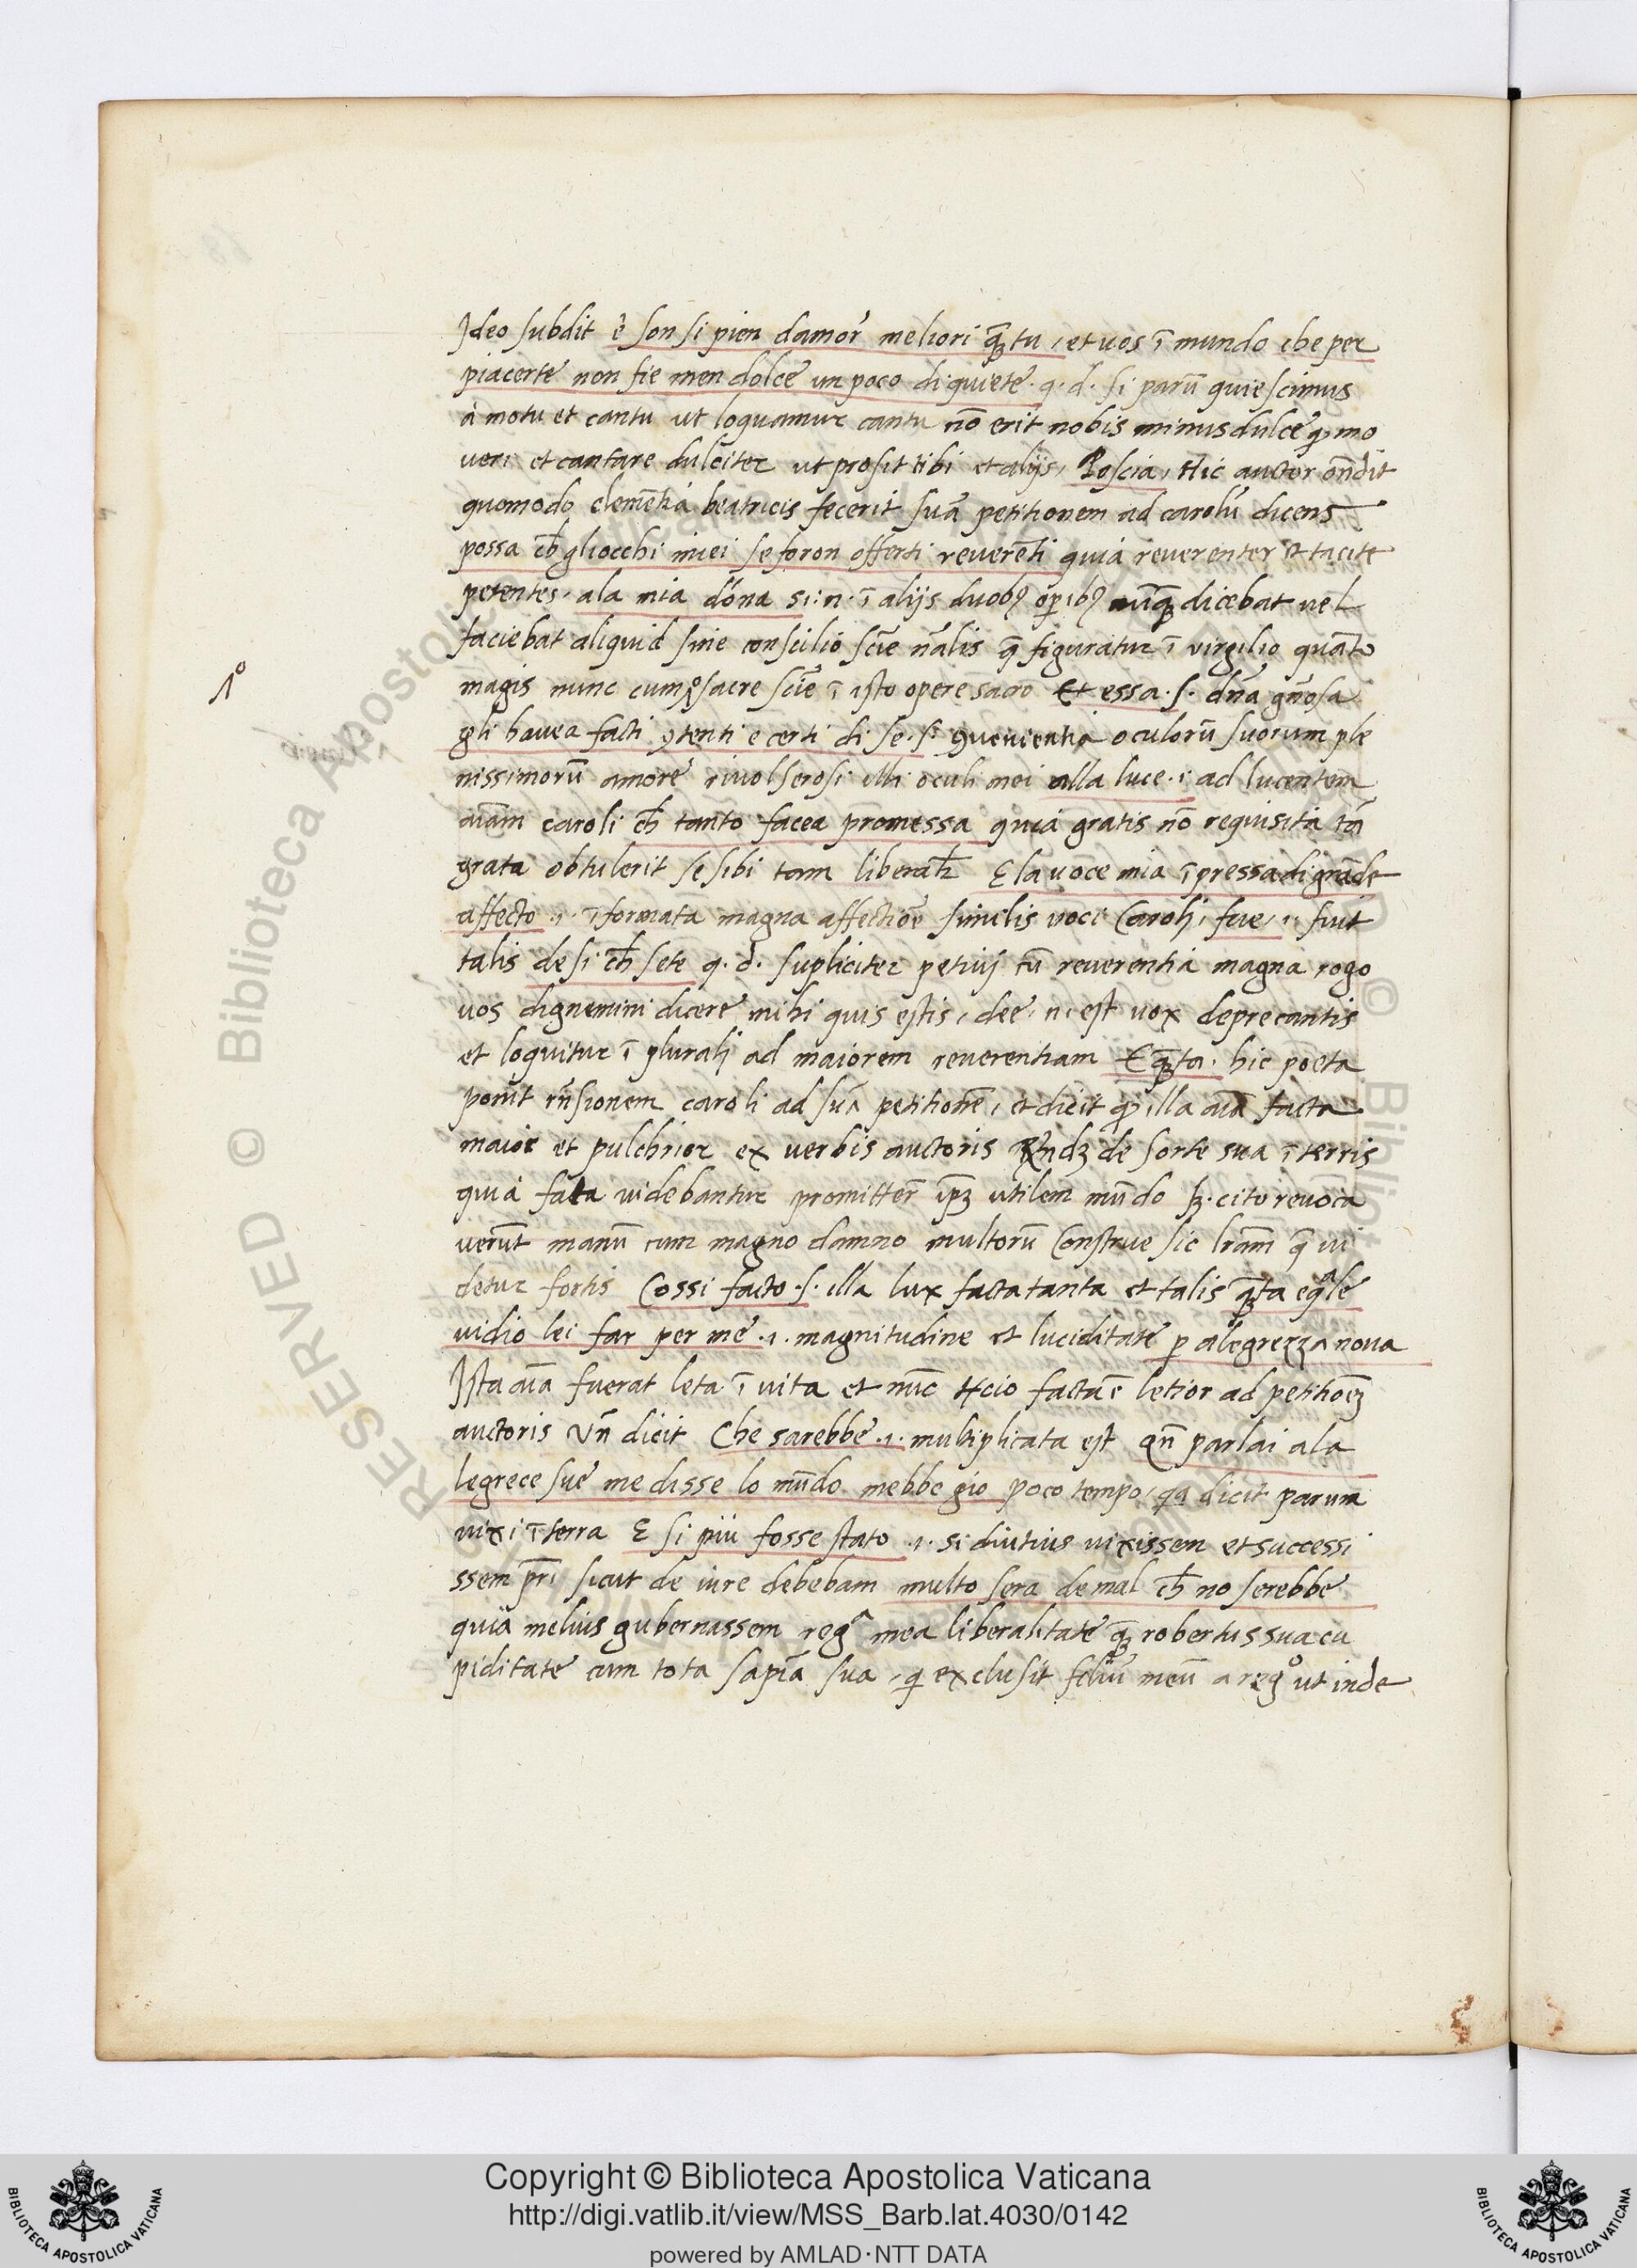 Ideo subdit è son si pien damor meliori q̄ȝ tu, et uos ī mundo che per
piacerte non fie men dolce un poco di quiete. q. d. si parū quiescimus
à motu et cantu ut loquamur cantu nō erit nobis minus dulce q̄ mo
veri et cantare dulciter ut prosit tibi et alijs, Poscia, Hic auctor on̄dit
quomodo clemētia beatricis fecerit suā petitionem ad carolū dicens
possa ch̄ gliocchi miei se foron offerti reverēti quia reverenter et tacite
petentes, ala mia dōna si: n. ī alijs duobȝ op̄ibȝ nūq̄ȝ dicebat vel
faciebat aliquid sine consilio sciē nālis q̄ figuratur ī virgilio quāto
magis nunc sacre sciē ī isto opere sacro Et essa .s. dn̄a gn̄osa
1°
gli havea fatti ꝯtenti e certi di se .s. ꝯvenientia oculorū suorum ple
nissimorū amore rivolserosi illi oculi mei alla luce .i. ad lucentem
aīam caroli ch̄ tanto facea promessa quia gratis nō requisita tā
grata obtulerit se sibi tam liberalr̄ E la voce mia īpressa di grāde
affecto .i. īformata magna affectiōe similis voci Caroli, fue, .i. fuit
talis de si ch̄ sete q. d. supliciter petivi cū reverentia magna rogo
vos dignemini dicere mihi quis estis, dee, n, est vox deprecantis
et loquitur ī plurali ad maiorem reverentiam E q̄ȝta. hic poeta
ponit rn̄sionem caroli ad suā petitionē, et dicit q̄ illa aīa facta
maior et pulchrior ex verbis auctoris de sorte sua ī terris
quia fata videbantur promitter̄ ip̄ȝ utilem mūdo sȝ. cito revoca
verūt manū cum magno damno multorū Construe sic lr̄am q̄ vi
detur fortis Cossi facto .s. illa lux facta tanta et talis q̄ȝta e q̄le
vidio lei far per me .i. magnitudine et luciditate p̱ alegrezza nova
Ista aīa fuerat leta ī vita et nūc facta ē letior ad petitiōeȝ
auctoris Vn̄ dicit Che sarebbe .i. multiplicata est qn̄ parlai ala
legrece sue me disse lo mūdo mebbe gio poco tempo, qq dicit parum
vixi ī terra E si piu fosse stato .i. si diutius vixissem et successi
ssem pr̄i sicut de iure debebam multo sera de mal ch̄ no serebbe
quia melius gubernassem regᵃ mea liberalitate q̄ȝ robertus sua cu
piditate cum tota sapīa sua, q̄ exclusit filiū meū a reg° ut inde
Copyright © Biblioteca Apostolica Vaticana
http://digi.vatlib.it/view/MSS_Barb.lat.4030/0142
powered by AMLAD·NTT DATA
BIBLIOTECA APOSTOLICA VATICANA
BIBLIOTECA APOSTOLICA VATICANA